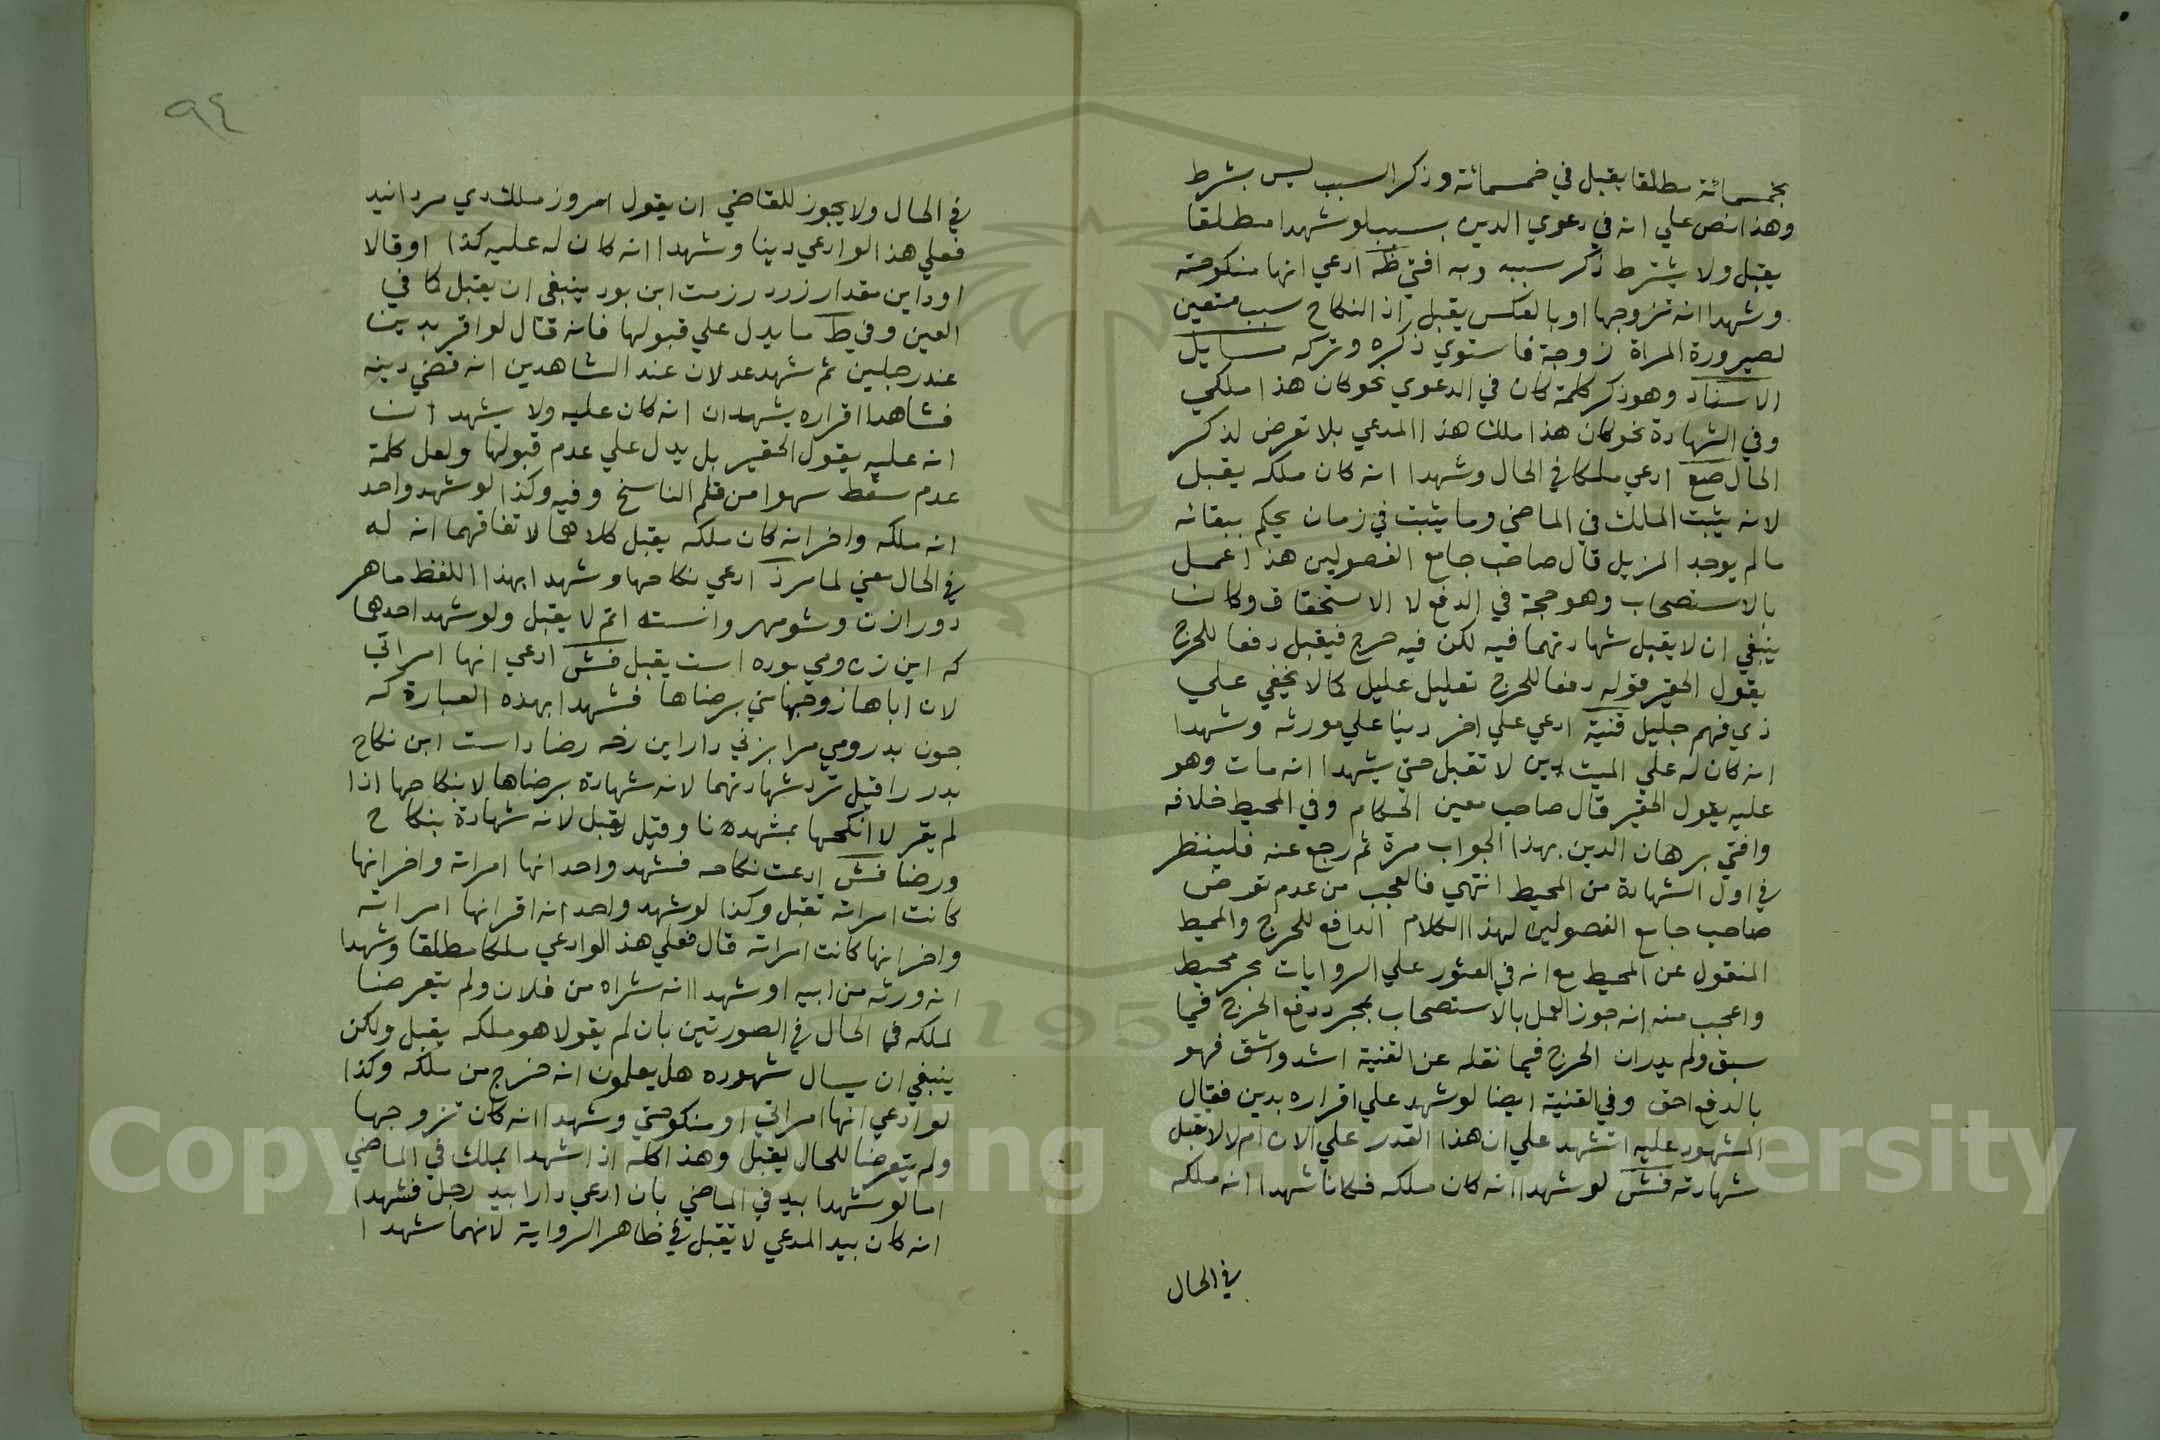 بخمسمائة مطلقا يقبل في خمسمائة وذكر السبب ليس بشرط
وهذا نص علي انه في دعوي الدين بسبب لو شهدا مطلقا
يقبل ولا يشترط ذكر سببه وبه افتي ظه ادعي انها منكوحته
وشهدا انه تزوجها او بالعكس يقبل اذ النكاح سبب متعين
لصيرورة المراة زوجة فاستوي ذكره وتركه مسايل
الاسناد وهو ذكر كلمة كان في الدعوي نحو كان هذا ملكي
وفي الشهادة نحو كان هذا ملك هذا المدعي بلا تعرض لذكر
الحال صع ادعي ملكا في الحال وشهدا انه كان ملكه يقبل
لانه يثبت الملك في الماضي وما يثبت في زمان يحكم ببقائه
مالم يوجد المزيل قال صاحب جامع الفصولين هذا عمل
بالاستصحاب وهو حجة في الدفع لا الاستحقاق وكان
ينبغي ان لا يقبل شهادتهما فيه لكن فيه حرج فيقبل دفعا للحرج
يقول الحقير قوله دفعا للحرج تعليل عليل كما لا يخفي علي
ذي فهم جليل قنية ادعي علي اخر دينا علي مورثه وشهدا
انه كان له علي الميت دين لا تقبل حتي يشهدا انه مات وهو
عليه يقول الحقير قال صاحب معين الحكام وفي المحيط خلافه
وافتي برهان الدين بهذا الجواب مرة ثم رجع عنه فلينظر
في اول الشهادة من المحيط انتهي فالعجب من عدم تعرض
صاحب جامع الفصولين لهذا الكلام الدافع للحرج والمحيط
المنقول عن المحيط مع انه في العثور علي الروايات بحر محيط
واعجب منه انه جوز العمل بالاستصحاب بمجرد دفع الحرج فيما
سبق ولم يدر ان الحرج فيما نقله عن القنية اشد واشق فهو
بالدفع احق وفي القنية ايضا لو شهد علي اقراره بدين فقال
المشهود عليه اتشهد علي ان هذا القدر علي الان ام لا لا تقبل
شهادته فش لو شهدا انه كان ملكه فكانا شهدا انه ملكه
في الحال
٩٤
في الحال ولا يجوز للقاضي ان يقول امروز ملك دي مردانيد
فعلي هذا لو ادعي دينا وشهدا انه كان له عليه كذا او قالا
اورا اين مقدار زر در زمت ابن بود ينبغي ان يقبل كما في
العين وفي ط ما يدل علي قبولها فانه قال لو اقر بدين
عند رجلين ثم شهد عدلان عند الشاهدين انه قضي دينه
فشاهدا اقراره يشهدان انه كان عليه ولا يشهدان
انه عليه يقول الحقير بل يدل علي عدم قبولها ولعل كلمة
عدم سقط سهوا من قلم الناسخ وفيه وكذا لو شهد واحد
انه ملكه واخر انه كان ملكه يقبل كلاهما لاتفاقهما انه له
في الحال معني لما مر ذ ادعي نكاحها وشهدا بهذا اللفظ ماهر
دورا زن وشومهر وانسته اتم لا يقبل ولو شهد احدهما
كه اين زن ومي بوده است يقبل فش ادعي انها امراتي
لان اباها زوجها مني برضاها فشهدا بهذه العبارة كه
جون بدر ومي مرا بزني داراين زخه رضا داست ابن نكاح
بدر را قيل ترد شهادتهما لانه شهادة برضاها لا بنكاحها اذا
لم يقر لا انكحها بمشهدهنا وقيل يقبل لانه شهادة بنكاح
ورضا فش ادعت نكاحه فشهد واحد انها امراته واخر انها
كانت امراته تقبل وكذا لو شهد واحد انه اقر انها امراته
واخر انها كانت امراته قال فعلي هذا لو ادعي ملكا مطلقا وشهدا
انه ورثه من ابيه او شهدا انه شراه من فلان ولم يتعرضا
لملكه في الحال في الصورتين بان لم يقولا هو ملكه يقبل ولكن
ينبغي ان يسال شهوده هل يعلمون انه خرج من ملكه وكذا
لو ادعي انها امراتي او منكوحتي وشهدا انه كان تزوجها
ولم يتعرضا للحال يقبل وهذا كله اذا شهدا بملك في الماضي
اما لو شهدا بيد في الماضي بان ادعي دارا بيد رجل فشهدا
انه كان بيد المدعي لا تقبل في ظاهر الرواية لانهما شهدا
Copyright © King Saud University
1957